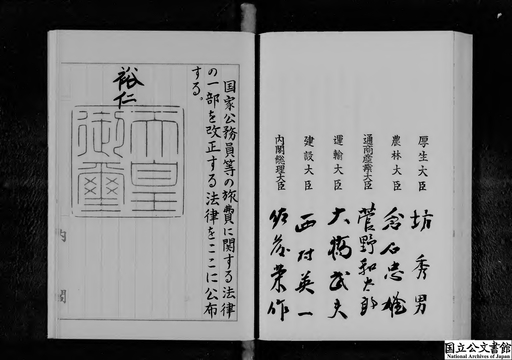 国家公務員等の旅費に関する法律
の一部を改正する法律をここに公布
する。
裕仁
天皇
御璽
内閣
厚生大臣 坊秀男
農林大臣 倉石忠雄
通商産業大臣 菅野和太郎
運輸大臣 大橋武夫
建設大臣 西村英一
内閣総理大臣 佐藤栄作
国立公文書館
National Archives of Japan